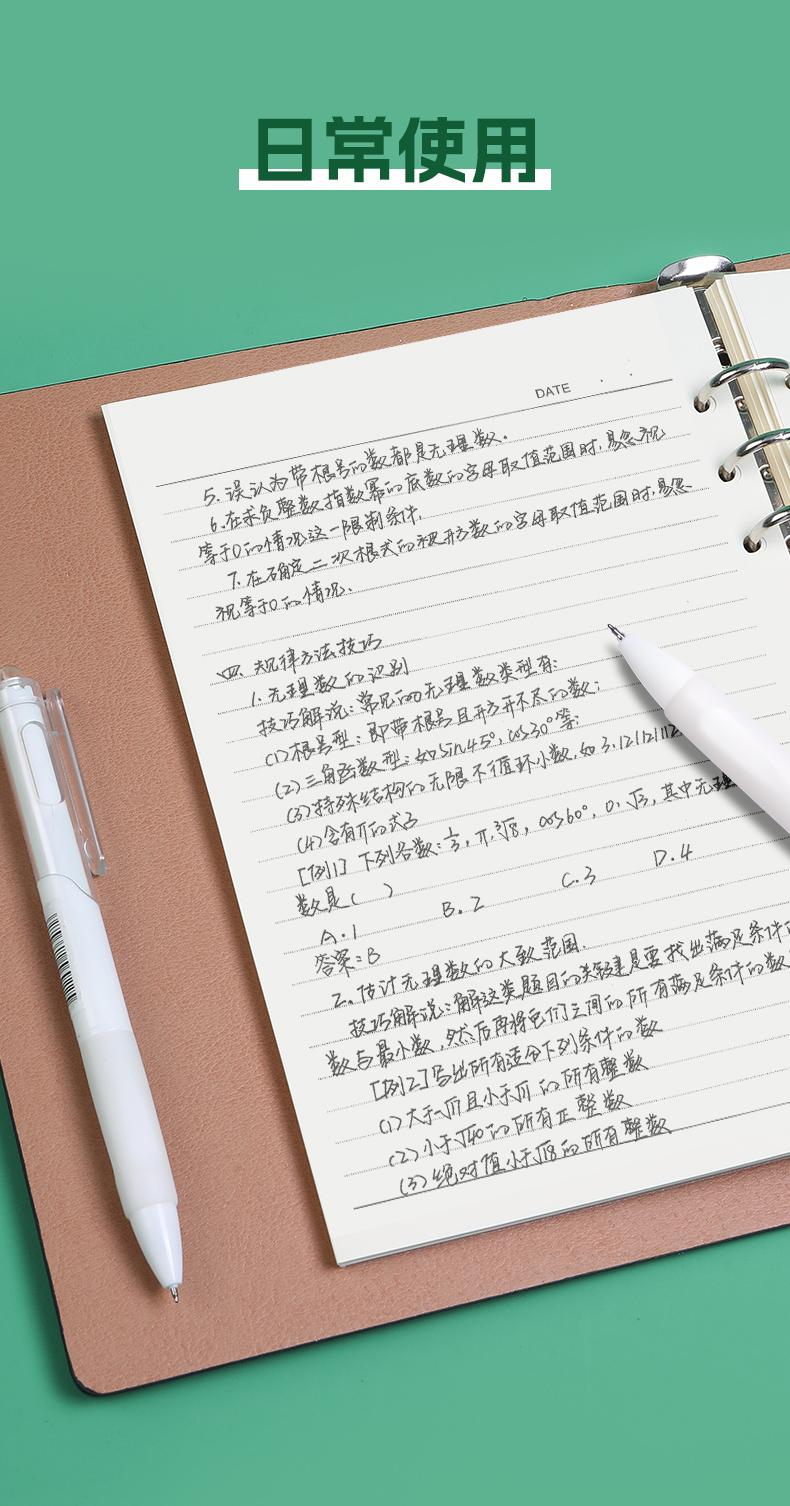 日常使用
DATE
5.误认为带根号的数都是无理数.
6.在求负整数指数幂的底数的字母取值范围时,易忽视
等于0的情况这一限制条件.
7.在确定二次根式的被开方数的字母取值范围时,易忽
视等于0的情况.
四.规律方法技巧
1.无理数的识别
技巧解说:常见的无理数类型有:
(1)根号型:即带根号且开方开不尽的数;
(2)三角函数型:如sin45°,cos30°等;
(3)特殊结构的无限不循环小数,如3.12112111211
(4)含有π的式子
[例1]下列各数:1/3,π,∛8,cos60°,0,√3,其中无理
数是( )
A.1 B.2 C.3 D.4
答案:B
2.估计无理数的大致范围.
技巧解说:解这类题目的关键是要找出满足条件的
数与最小数,然后再将它们之间的所有满足条件的数
[例2]写出所有适合下列条件的数
(1)大于-√17且小于√11的所有整数
(2)小于√40的所有正整数
(3)绝对值小于√18的所有整数